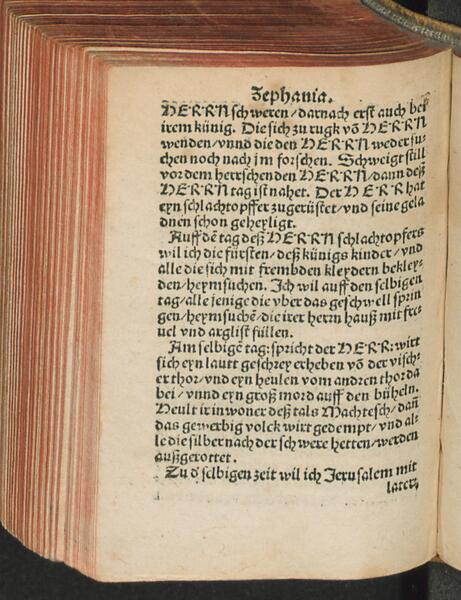 Zephania.
HERRN schweren/darnach erst auch bei
irem künig. Die sich zu rugk vō HERRN
wenden/vnnd die den HERRN weder su-
chen noch nach jm forschen. Schweigt still
vor dem herrschenden HERRN/dann deß
HERRN tag ist nahet. Der HERR hat
eyn schlachtopffer zugerüstet/vnd seine gela
dnen schon geheyligt.
Auff dē tag deß HERRN schlachtopfers
wil ich die fürsten/deß künigs kinder/vnd
alle die sich mit frembden kleydern bekley-
den/heymsuchen. Ich wil auff den selbigen
tag/alle jenige die vber das geschwell sprin
gen/heymsuchē/die irer herrn hauß mit fre-
uel vnd arglist füllen.
Am selbigē tag: spricht der HERR: wirt
sich eyn lautt geschrey erheben vō der visch-
er thor/vnd eyn heulen vom andren thor da
bei/vnnd eyn groß mord auff den büheln.
Heult ir inwoner deß tals Machtesch/dañ
das gewerbig volck wirt gedempt/vnd al-
le die silber nach der schwere hetten/werden
außgerottet.
Zu ď selbigen zeit wil ich Jerusalem mit
later,